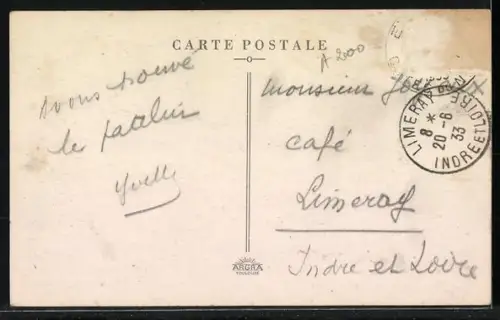 CARTE POSTALE
A 2000
avons trouvé
le
Yvette
monsieur
café
Limeray
Indre et Loire
LIMERAY
8 *
20-6
33
INDRE ET LOIRE